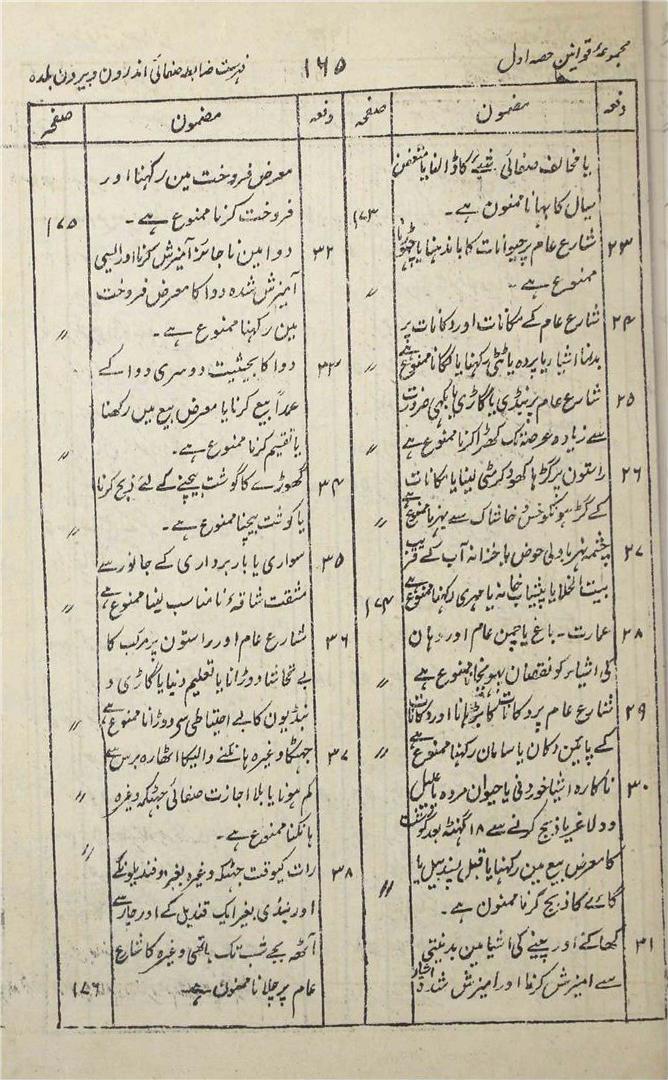 مجموعۂ قوانین حصہ اول
۱۶۵
فہرست ضابطہ صفائی اندرون و بیرون بلدہ
دفعہ مضمون صفحہ
یا مخالف صفائی شئے کا ڈالنا یا متعفن
سیال کا بہانا ممنوع ہے۔ ۱۷۳
۲۳ شارع عام پر حیوانات کا باندہنا یا چھوڑنا
ممنوع ہے۔ 〃
۲۴ شارع عام کے مکانات اور دکانات پر
بدنما اشیا یا پردہ یا ٹٹی رکہنا یا لگانا ممنوع ہے 〃
۲۵ شارع عام پر بنڈی یا گاڑی یا بگھی ضرورت
سے زیادہ عرصہ تک کھڑا کرنا ممنوع ہے 〃
۲۶ راستون پر گڑہا کھود کر مٹی لینا یا مکانات
کے گڑہونکو خس و خاشاک سے بہرنا ممنوع ہے 〃
۲۷ چشمہ نہر باولی حوض یا خزانہ آب کے قریب
بیت الخلا یا پیشاب خانہ یا مہری رکہنا ممنوع ہے ۱۷۴
۲۸ عمارت۔ باغ یا چمن عام اور وہان
کی اشیاء کو نقصان پہونچانا ممنوع ہے 〃
۲۹ شارع عام پر دکانات کا بڑہانا اور دکانات
کے پائین دکان یا سامان رکہنا ممنوع ہے 〃
۳۰ ناکارہ اشیا خوردنی یا حیوان مردہ یا علیل
و لاغر یا ذبح کرنے سے ۱۸ گہنٹہ بعد گوشت
کا معرض بیع مین رکہنا یا قبل پسند بیل یا
گائے کا ذبح کرنا ممنوع ہے۔ 〃
۳۱ کھانے اور پینے کی اشیا مین بدنیتی
سے امیزش کرنا اور امیزش شدہ اشیاء
دفعہ مضمون صفحہ
معرض فروخت مین رکہنا اور
فروخت کرنا ممنوع ہے۔ ۱۷۵
۳۲ دوا مین ناجائز آمیزش کرنا اور ایسی
آمیزش شدہ دوا کا معرض فروخت
مین رکہنا ممنوع ہے۔ 〃
۳۳ دوا کا بحیثیت دوسری دوا کے
عمداً بیع کرنا یا معرض بیع میں رکھنا
یا تقیم کرنا ممنوع ہے۔ 〃
۳۴ گھوڑے کا گوشت بیچنے کے لئے ذبح کرنا
یا گوشت بیچنا ممنوع ہے۔ 〃
۳۵ سواری یا باربرداری کے جانور سے
مشقت شاقہ نا مناسب لینا ممنوع ہے 〃
۳۶ شارع عام اور راستون پر مرکب کا
بے تحاشا دوڑانا یا تعلیم دنیا یا گاڑی و
بنڈیون کا بے احتیاطی سی دوڑانا ممنوع ہے 〃
۳۷ جہٹکا وغیرہ ہانکنے والیکا اٹھارہ برس سے
کم ہونا یا بلا اجازت صفائی جہٹکہ وغیرہ 〃
ہانکنا ممنوع ہے۔ 〃
۳۸ رات کیوقت جہٹکہ وغیرہ بغیر دو قندیلونکے
اور بنڈی بغیر ایک قندیل کے اور چار سے
آٹھ بجے شب تک ہاتھی وغیرہ کا شارع
عام پر چلانا ممنوع ہے ۱۷۶